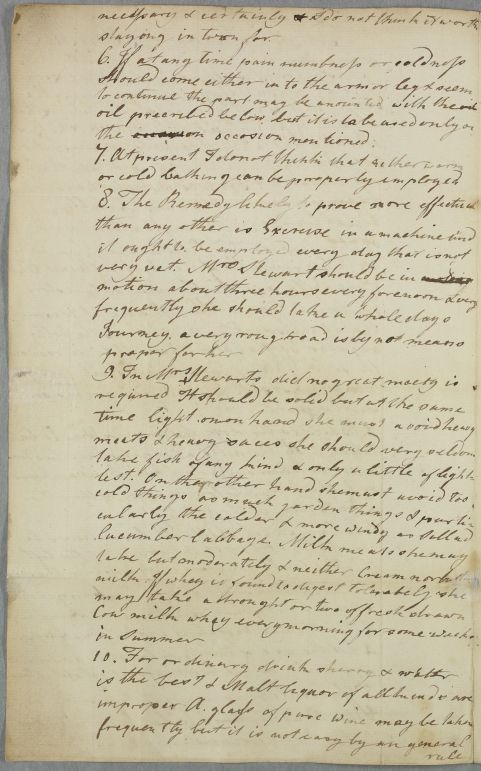 necessary & certainly & I do not think it worth
staying in town for.
6. If at any time pain numbness or coldness
should come either in to the arm or leg & seem
to continue the part may be anointed with the
oil prescribed below, but it is to be used only on
the occasion mentioned.
7. At present I do not think that either warm
or cold bathing can be properly employed
8. The Remedy likely to prove more effectual
than any other is Exercise in a machine and
it ought to be employed every day that is not
very wet. Mrs Stewart should be in
motion about three hours every forenoon & very
frequently she should take a whole days
Journey. a very rough road is by no means
proper for her
9. In Mrs Stewarts diet no great nicety is
required It should be solid but at the same
time light. on one hand she must avoid heavy
meats & heavy sauces she should very seldom
take fish of any kind & only a little of light-
lest. On the other hand she must avoid too
cold things as much garden things & particu-
cularly the colder & more windy as Sallad
Cucumber Cabbage. Milk meats she may
take but moderately & neither Cream nor
milk. If whey is found to digest tolerably she
may take a draught or two of fresh drawn
Cow milk whey every morning for some weeks
in Summer
10. For ordinary drink sherry & water
is the best & Malt liquor of all kinds are
improper A glass of pure Wine may be taken
frequently but it is not easy by an general
rule